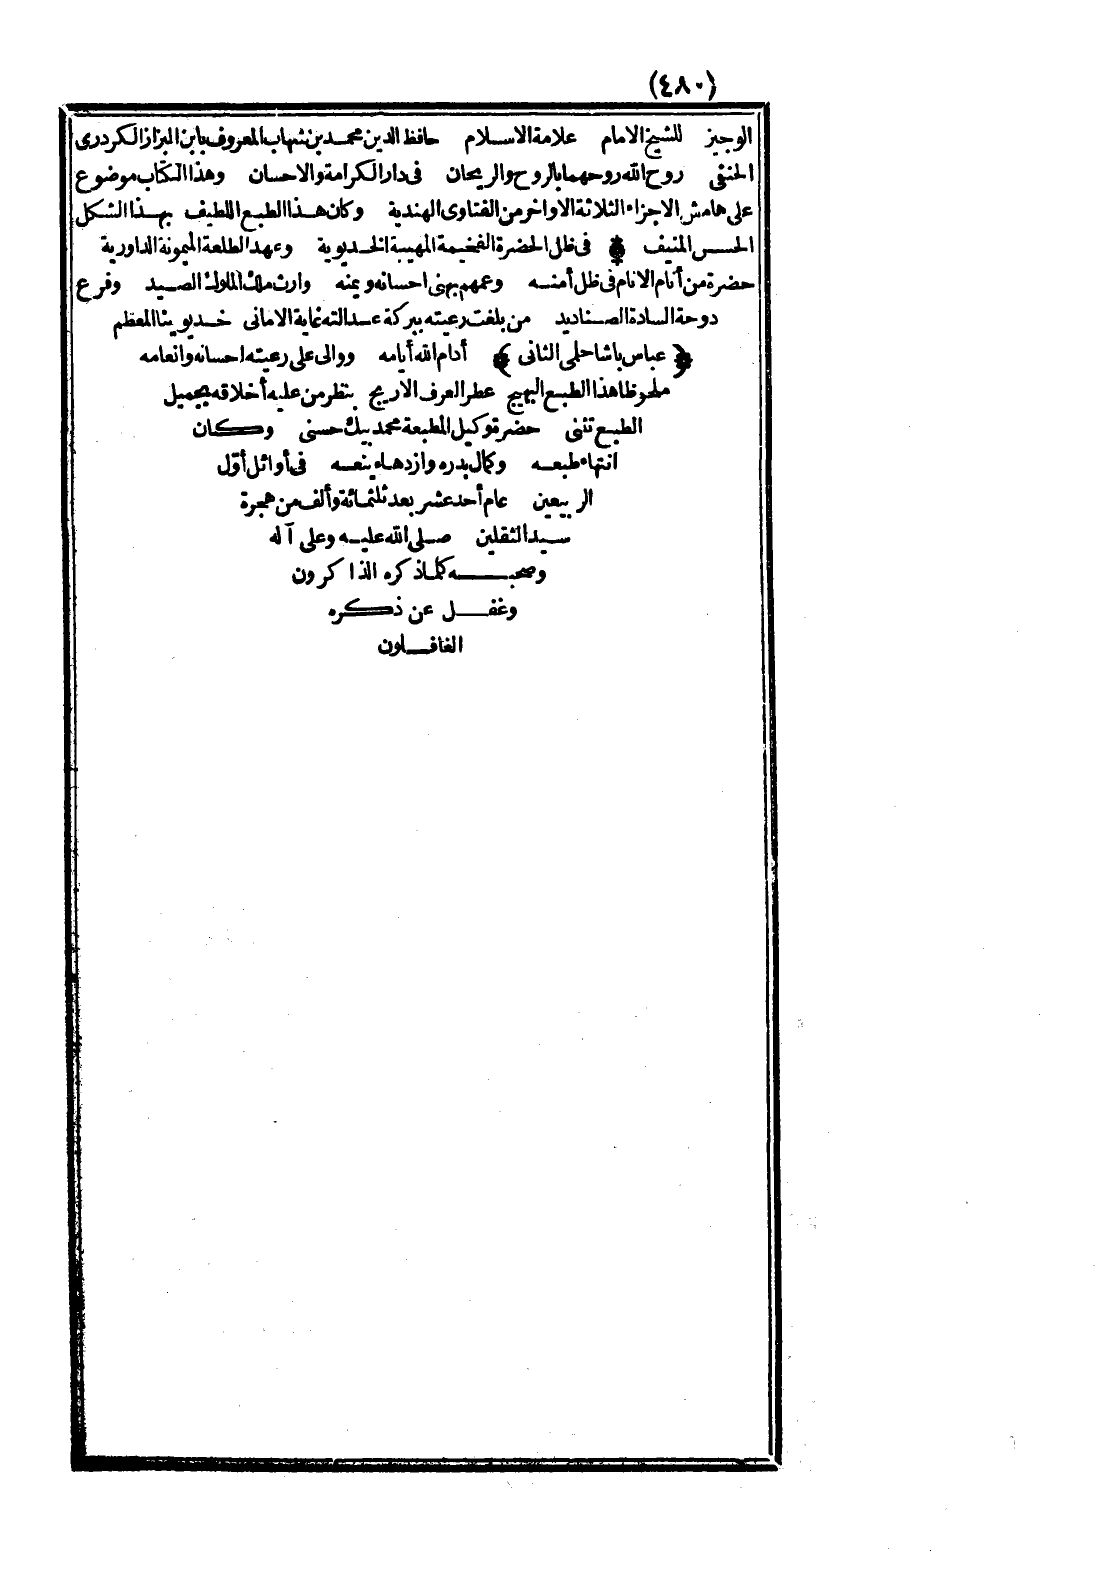 (٤٨٠)
الوجيز للشيخ الامام علامة الاسلام حافظ الدين محمد بن شهاب المعروف بابن البزاز الكردرى
الحنفى روح الله روحهما بالروح والريحان فى دار الكرامة والاحسان وهذا الكتاب موضوع
على هامش الاجزاء الثلاثة الاواخر من الفتاوى الهندية وكان هذا الطبع اللطيف بهذا الشكل
الحسن المنيف * فى ظل الحضرة الفخيمة المهيبة الخديوية وعهد الطلعة الميمونة الداورية
حضرة من أنام الانام فى ظل أمنه وعمهم بهنى احسانه ويمنه وارث ملك الملوك الصيد وفرع
دوحة السادة الصناديد من بلغت رعيته ببركة عدالته غاية الامانى خديوينا المعظم
﴿ عباس باشا حلمى الثانى ﴾ أدام الله أيامه ووالى على رعيته احسانه وانعامه
ملحوظا هذا الطبع البهيج عطر العرف الاريج بنظر من عليه أخلاقه بجميل
الطبع تثنى حضرة وكيل المطبعة محمد بيك حسنى وكان
انتهاء طبعه وكمال بدره وازدهاء ينعه فى أوائل أول
الربيعين عام أحد عشر بعد ثلثمائة وألف من هجرة
سيد الثقلين صلى الله عليه وعلى آله
وصحبه كلما ذكره الذاكرون
وغفل عن ذكره
الغافلون